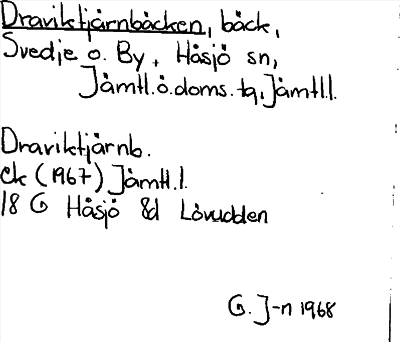 Draviktjärnbäcken, bäck,
Svedje o. By, Håsjö sn,
Jämtl.ö.doms.tg, Jämtl.l.
Draviktjärnb.
ek (1967) Jämtl.l.
18 G Håsjö 8d Lövudden
G. J-n 1968